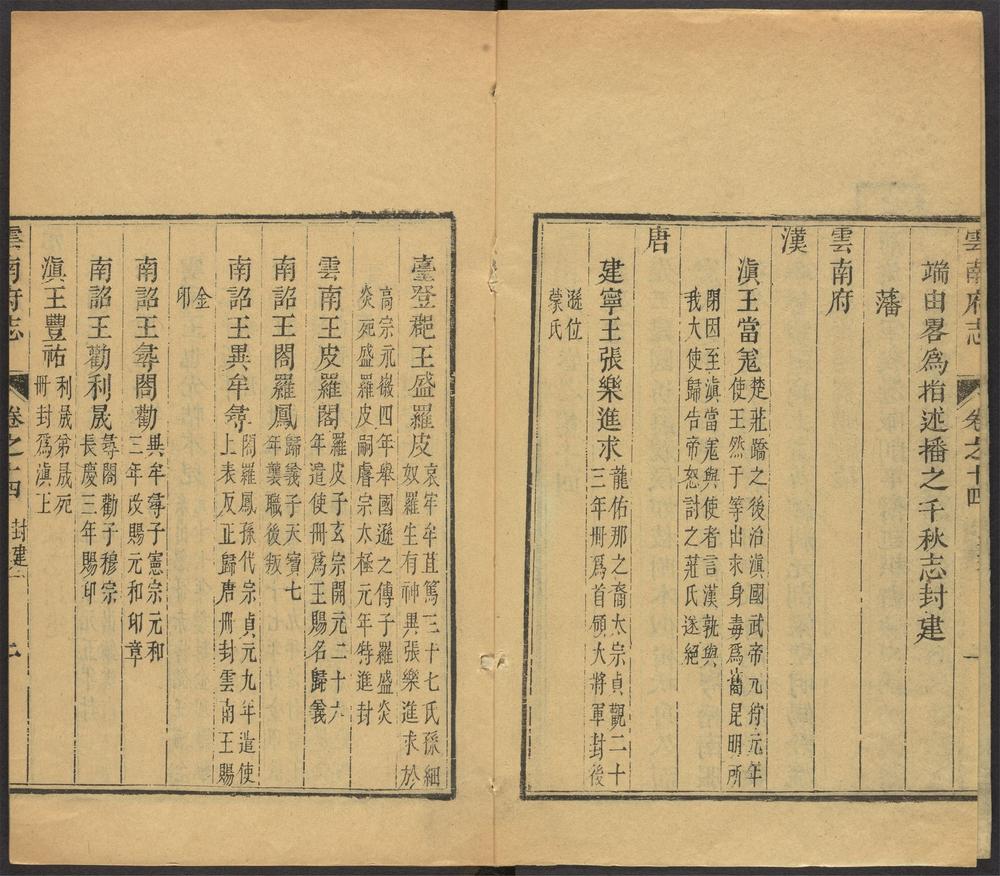 雲南府志 卷之十四 一
端由畧爲指述播之千秋志封建
藩
雲南府
漢
滇王當羗 楚莊蹻之後治滇國武帝元狩元年
使王然于等出求身毒爲嶲昆明所
閉因至滇當羗與使者言漢孰與
我大使歸告帝怒討之莊氏遂絕
唐
建寧王張樂進求 龍佑那之裔太宗貞觀二十
三年冊爲首領大將軍封後
遜位
蒙氏
臺登郡王盛羅皮 哀牢牟苴篤三十七氏孫細
奴羅生有神異張樂進求於
高宗永徽四年舉國遜之傳子羅盛炎
炎死盛羅皮嗣睿宗太極元年特進封
雲南王皮羅閣 羅皮子玄宗開元二十六
年遣使冊爲王賜名歸義
南詔王閣羅鳳 歸義子天寶七
年襲職後叛
南詔王異牟尋 閣羅鳳孫代宗貞元九年遣使
上表反正歸唐冊封雲南王賜
金
印
南詔王尋閣勸 異牟尋子憲宗元和
三年改賜元和印章
南詔王勸利晟 尋閣勸子穆宗
長慶三年賜印
滇王豐祐 利晟弟晟死
冊封爲滇王
雲南府志 卷之十四 封建 二